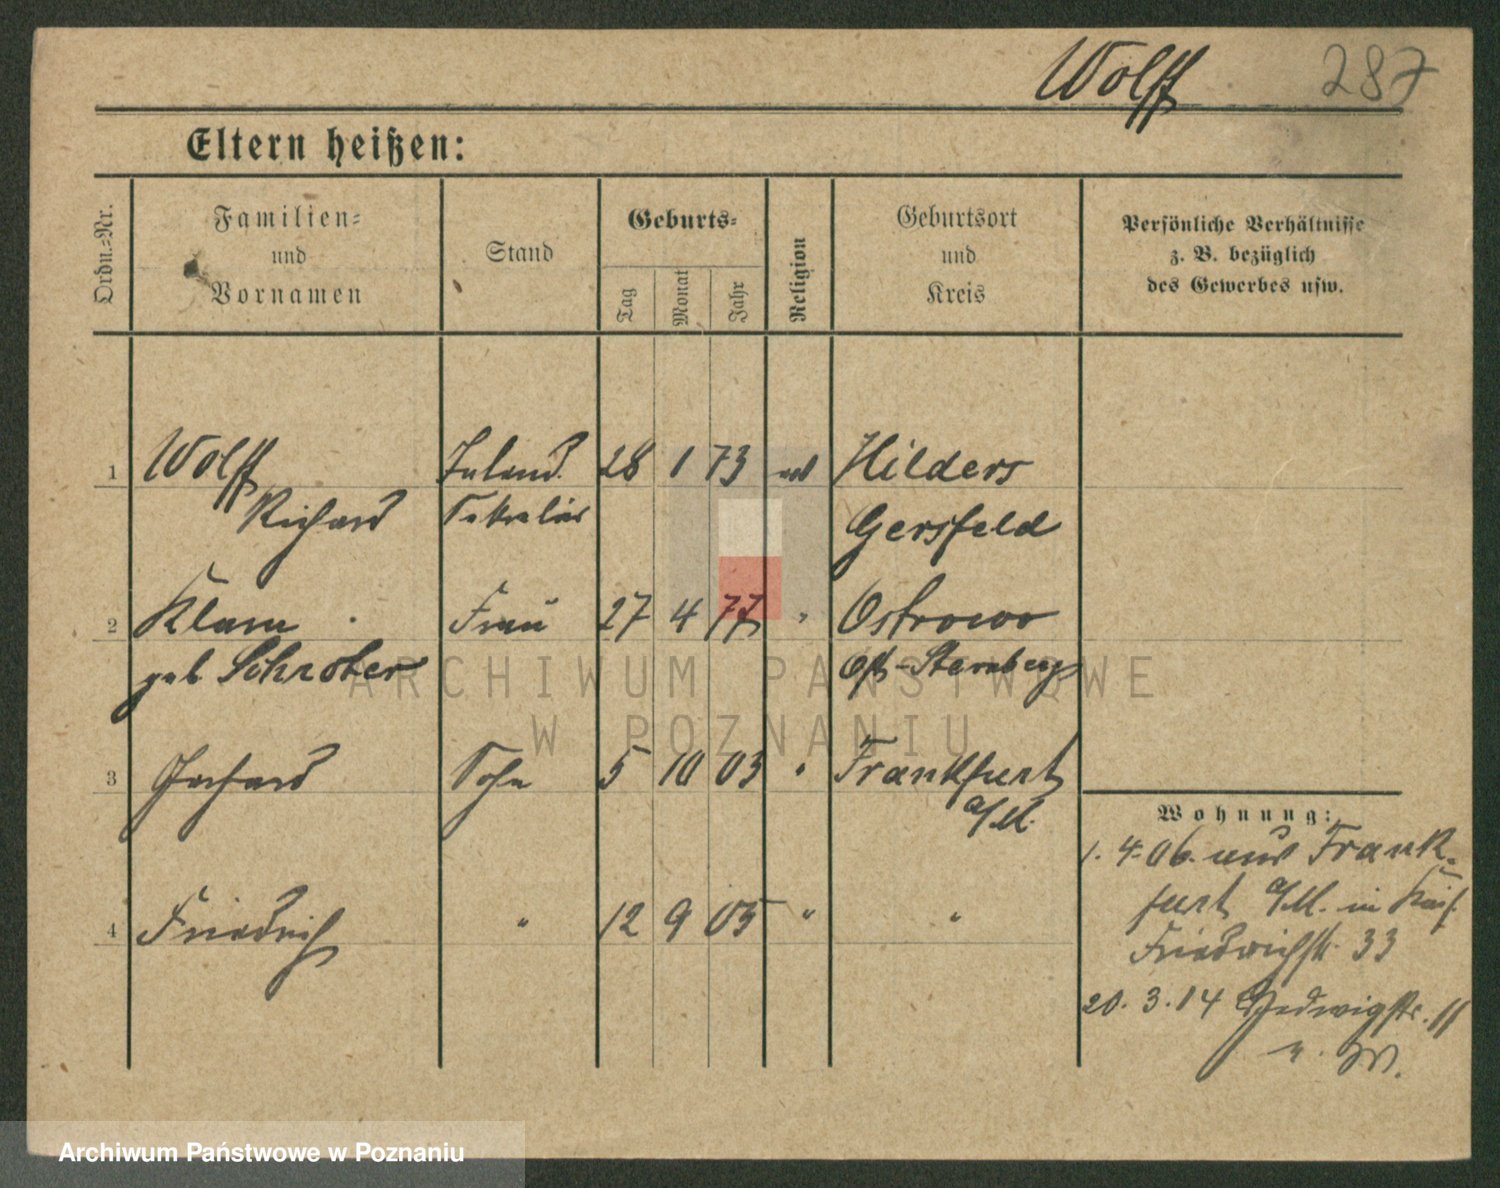 Wolff 287
Eltern heißen:
Ordn.-Nr.
Familien-
und
Vornamen
Stand
Geburts-
Tag
Monat
Jahr
Religion
Geburtsort
und
Kreis
Persönliche Verhältnisse
z. B. bezüglich
des Gewerbes usw.
1 Wolff 28 1 73 Hilders
Richard Sekretär Gersfeld
2 Klara Frau 27 4 77 " Ostrowo
geb Schrober Ost-Sternberg
3 Gerhard Sohn 5 10 03 " Frankfurt
a/M.
4 Friedrich " 12 9 05 " "
Wohnung:
1. 4. 06. aus Frank-
furt a/M. in Kais.
Friedrichstr. 33
20. 3. 14 Hedwigstr. 11
ARCHIWUM PAŃSTWOWE
W POZNANIU
Archiwum Państwowe w Poznaniu